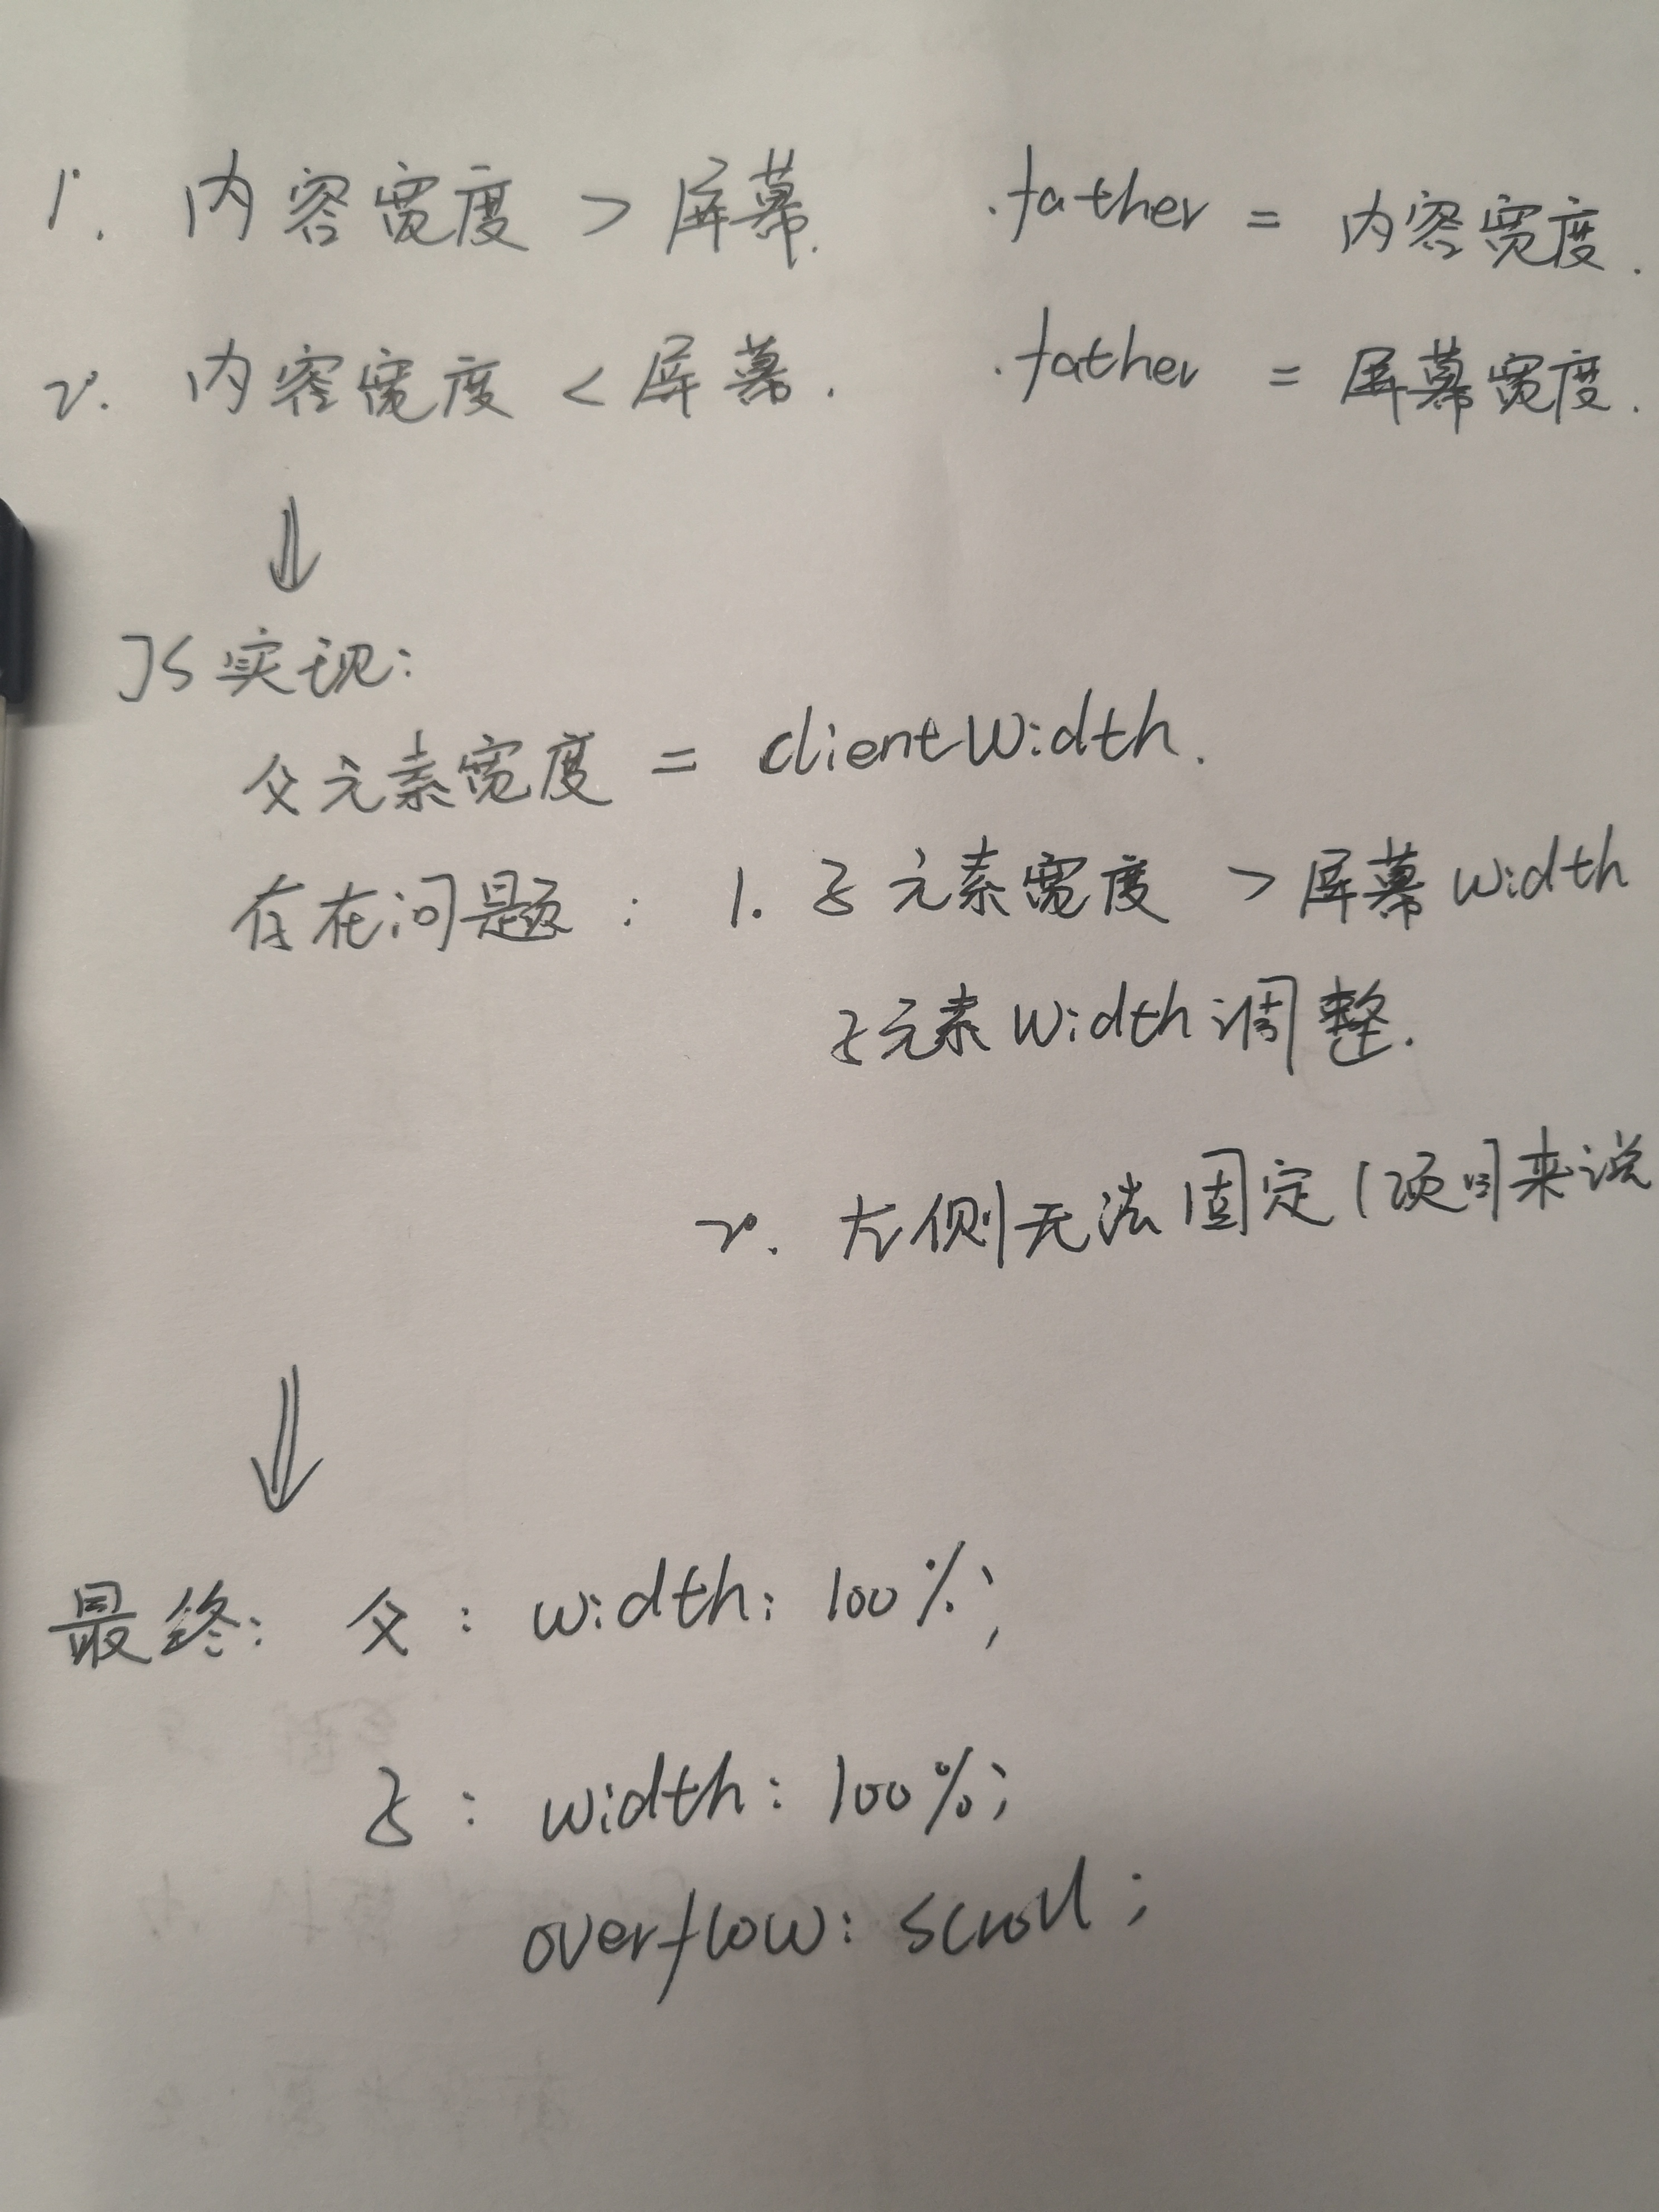 1. 内容宽度 > 屏幕. .father = 内容宽度.
2. 内容宽度 < 屏幕. .father = 屏幕宽度.
JS实现:
父元素宽度 = clientWidth.
存在问题: 1. 子元素宽度 > 屏幕width
子元素width调整.
2. 左侧无法固定(项目来说
最终: 父: width: 100%;
子: width: 100%;
overflow: scroll;